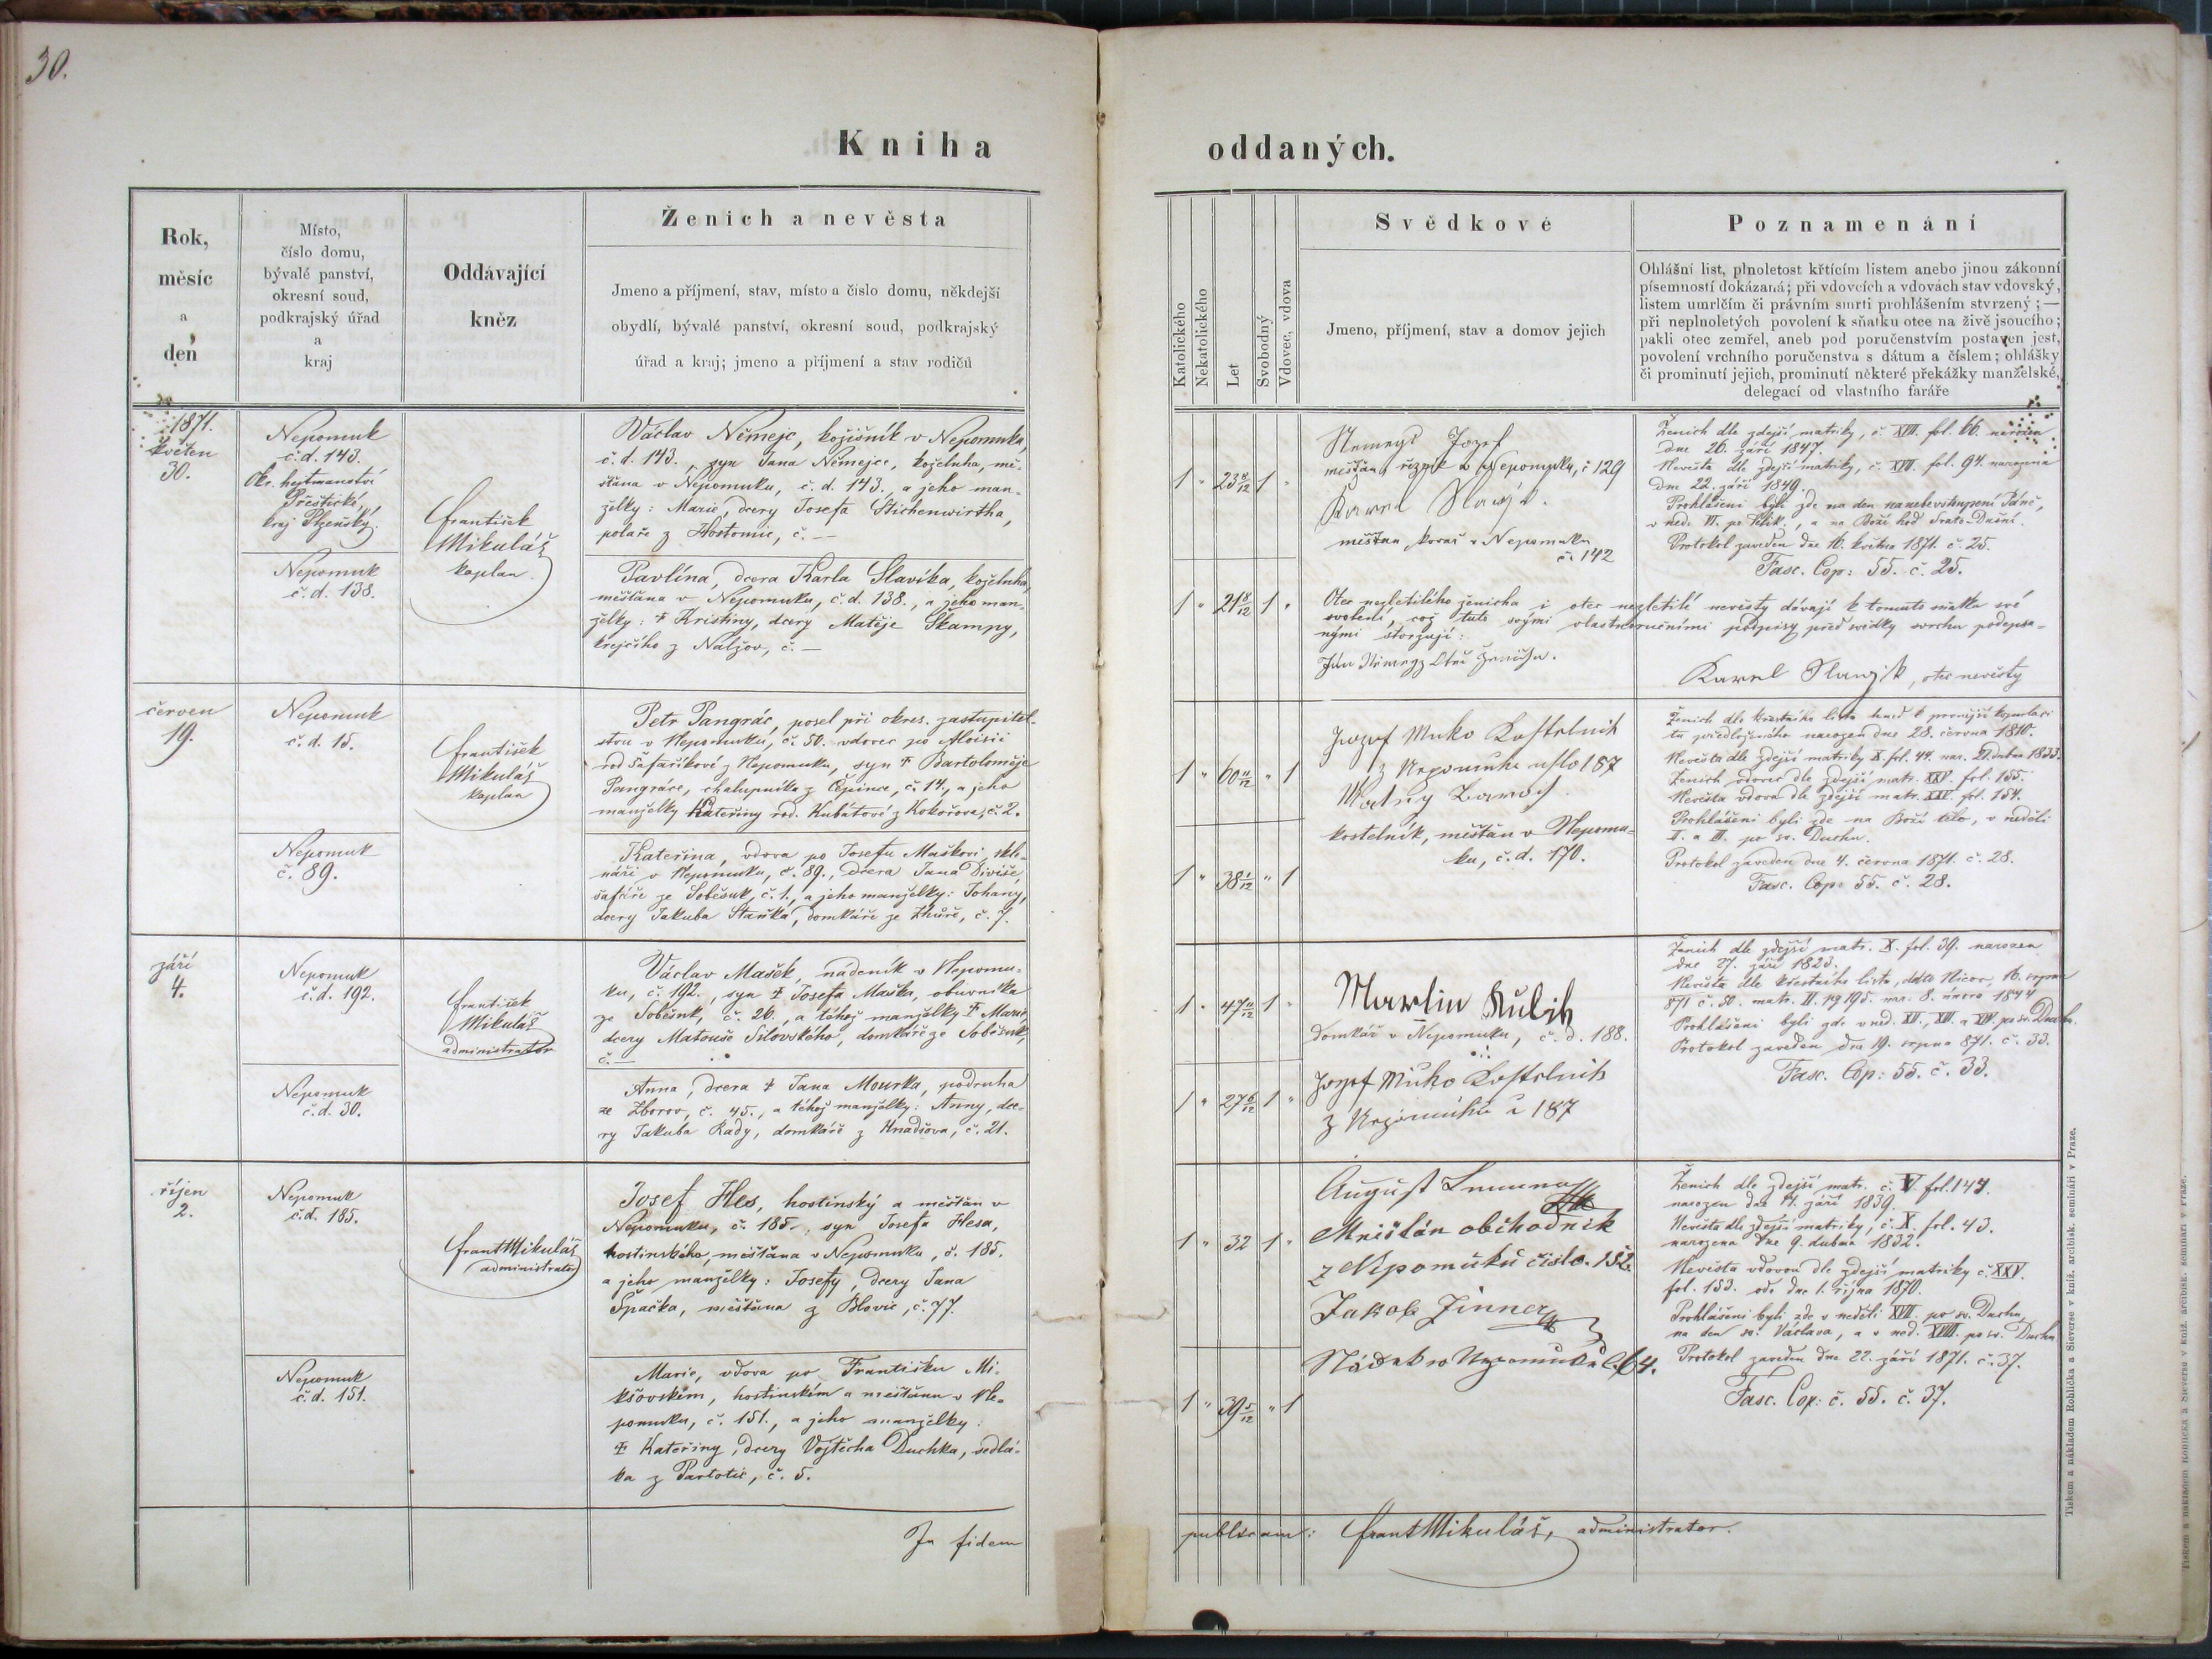 30.
Kniha
oddaných.
Rok,
měsíc
a
den
Místo,
číslo domu,
bývalé panství,
okresní soud,
podkrajský úřad
a
kraj
Oddávající
kněz
Ženich a nevěsta
Jmeno a příjmení, stav, místo a číslo domu, někdejší
obydlí, bývalé panství, okresní soud, podkrajský
úřad a kraj; jmeno a příjmení a stav rodičů
1871.
květen
30.
Nepomuk
č.d. 143.
Okr. hejtmanství
Přeštické,
kraj Plzeňský.
František
Mikuláš
kaplan.
Václav Němejc, kožišník v Nepomuku,
č.d. 143., syn Jana Němejce, koželuha, mě-
šťana v Nepomuku, č.d. 143., a jeho man-
želky: Marie, dcery Josefa Stichenwirtha,
polaře z Hostomic, č. —
Nepomuk
č.d. 138.
Pavlína, dcera Karla Slavíka, koželuha,
měšťana v Nepomuku, č.d. 138., a jeho man-
želky: † Kristiny, dcery Matěje Škampy,
krejčího z Nalžov, č. —
červen
19.
Nepomuk
č.d. 15.
František
Mikuláš
kaplan
Petr Pangrác, posel při okres. zastupitel-
stvu v Nepomuku, č. 50. vdovec po Aloisii
rod. Šafaříkové z Nepomuku, syn † Bartoloměje
Pangráce, chalupníka z Čepince, č. 14., a jeho
manželky Kateřiny rod. Kubátové z Kokořova, č. 2.
Nepomuk
č. 89.
Kateřina, vdova po Josefu Maškovi, skle-
náři v Nepomuku, č. 89., dcera Jana Diviše,
šafáře ze Soběsuk, č. 1., a jeho manželky: Johany,
dcery Jakuba Staňka, domkáře ze Zhůře, č. 7.
září
4.
Nepomuk
č.d. 192.
František
Mikuláš
administrator
Václav Mašek, nádeník v Nepomu-
ku, č. 192., syn † Josefa Maška, obuvníka
ze Soběsuk, č. 26., a téhož manželky † Marie,
dcery Matouše Silovského, domkáře ze Soběsuk,
č. —
Nepomuk
č.d. 30.
Anna, dcera † Jana Mourka, podruha
ze Zborov, č. 45., a téhož manželky: Anny, dce-
ry Jakuba Rady, domkáře z Hnačova, č. 21.
říjen
2.
Nepomuk
č.d. 185.
Frant Mikuláš
administrator
Josef Hes, hostinský a měšťan v
Nepomuku, č. 185., syn Josefa Hesa,
hostinského, měšťana v Nepomuku, č. 185.
a jeho manželky: Josefy, dcery Jana
Špačka, měšťana z Blovic, č. 77.
Nepomuk
č.d. 151.
Marie, vdova po Františku Mi-
kšovském, hostinském a měšťanu v Ne-
pomuku, č. 151., a jeho manželky:
† Kateřiny, dcery Vojtěcha Duchka, sedlá-
ka z Partotic, č. 5.
In fidem
Katolického
Nekatolického
Let
Svobodný
Vdovec, vdova
Svědkové
Jmeno, příjmení, stav a domov jejich
Poznamenání
Ohlášní list, plnoletost křtícím listem anebo jinou zákonní
písemností dokázaná; při vdovcích a vdovách stav vdovský,
listem umrlčím či právním smrti prohlášením stvrzený; —
při neplnoletých povolení k sňatku otce na živě jsoucího;
pakli otec zemřel, aneb pod poručenstvím postaven jest,
povolení vrchního poručenstva s dátum a číslem; ohlášky
či prominutí jejich, prominutí některé překážky manželské,
delegací od vlastního faráře
1 " 23 8/12 1 "
Nemeyc Jozef
mešťan, řezník v Nepomuku, č 129
Karel Slavjk.
měštan kovař v Nepomuku
č. 142
Ženich dle zdejší matriky, č. XVII. fol. 66. narozen
dne 26. září 1847.
Nevěsta dle zdejší matriky, č. XVII. fol. 94. narozena
dne 22. září 1849.
Prohlášeni byli zde na den nanebevstoupení Páně,
v ned. VI. po Velik., a na Boží hod Svato-Dušní.
Protokol zaveden dne 16. května 1871. č. 25.
Fasc. Cop: 55. č. 25.
1 " 21 8/12 1 "
Otec nezletilého ženicha i otec nezletilé nevěsty dávají k tomuto sňatku své
svolení, což tuto svými vlastnoručními podpisy před svědky svrchu podepsa-
nými stvrzují:
Jan Němegz Otec ženicha.
Karel Slawjk, otec nevěsty
1 " 60 11/12 " 1
Jozef Muko Kostelnik
z Nepomuku čislo 187
kostelník, měšťan v Nepomu-
ku, č.d. 170.
Ženich dle křestního listu hned k prvnější kopulaci
tu předloženého narozen dne 28. června 1810.
Nevěsta dle zdejší matriky X. fol. 44. nar. 21. dubna 1833.
Ženich vdovec dle zdejší matr. XXV. fol. 155.
Nevěsta vdova dle zdejší matr. XXV. fol. 154.
Prohlášeni byli zde na Boží tělo, v neděli
II. a III. po sv. Duchu.
Protokol zaveden dne 4. června 1871. č. 28.
Fasc. Cop: 55. č. 28.
1 " 38 1/12 " 1
1 " 47 11/12 1 "
Martin Kulih
domkář v Nepomuku, č.d. 188.
Jozef Muko Kostelnik
z Nepomuku č 187
Ženich dle zdejší matr. X. fol. 39. narozen
dne 27. září 1823.
Nevěsta dle křestního listu, ddto Nicov, 16. srpna
871 č. 50. matr. II. pg 195. nar. 8. února 1844
Prohlášeni byli zde v ned. XII., XIII. a XIV. po sv. Duchu.
Protokol zaveden dne 19. srpna 871. č. 33.
Fasc. Cop: 55. č. 33.
1 " 27 6/12 1 "
1 " 32 1 "
August
Mnišťán obchodník
z Nepomuku čislo. 152
Jakob Zinner
v Nepomuku č. 64.
Ženich dle zdejší matr. č. V. fol. 147.
narozen dne 14. září 1839.
Nevěsta dle zdejší matriky, č. X. fol. 43.
narozena dne 9. dubna 1832.
Nevěsta vdovou dle zdejší matriky č. XXV.
fol. 153. ode dne 1. října 1870.
Prohlášeni byli zde v neděli XVII. po sv. Duchu,
na den sv. Václava, a v ned. XVIII. po sv. Duchu
Protokol zaveden dne 22. září 1871. č. 37.
Fasc. Cop: č. 55. č. 37.
1 " 39 5/12 " 1
publicam: Frant Mikuláš, administrator.
Tiskem a nákladem Rohlíčka a Sieverse v kníž. arcibisk. semináři v Praze.